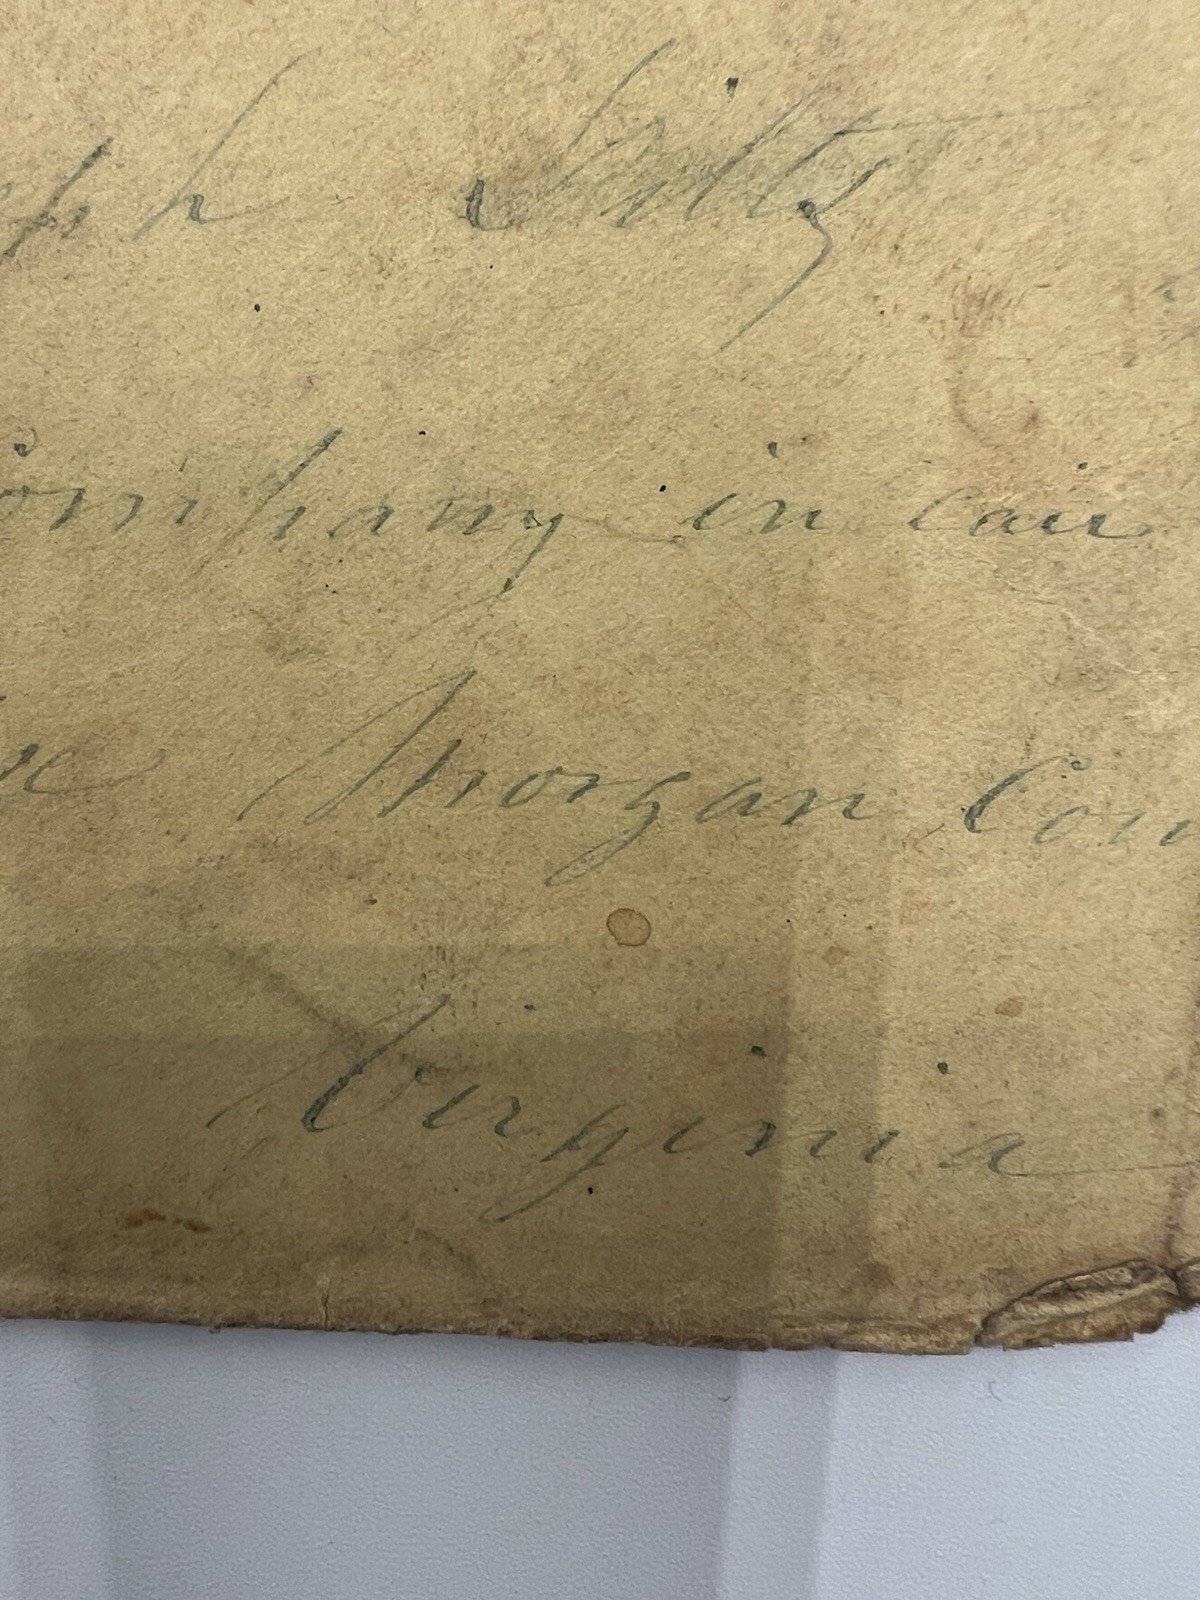 ph Siltz
ompany in cau
Morgan Cou
Virginia